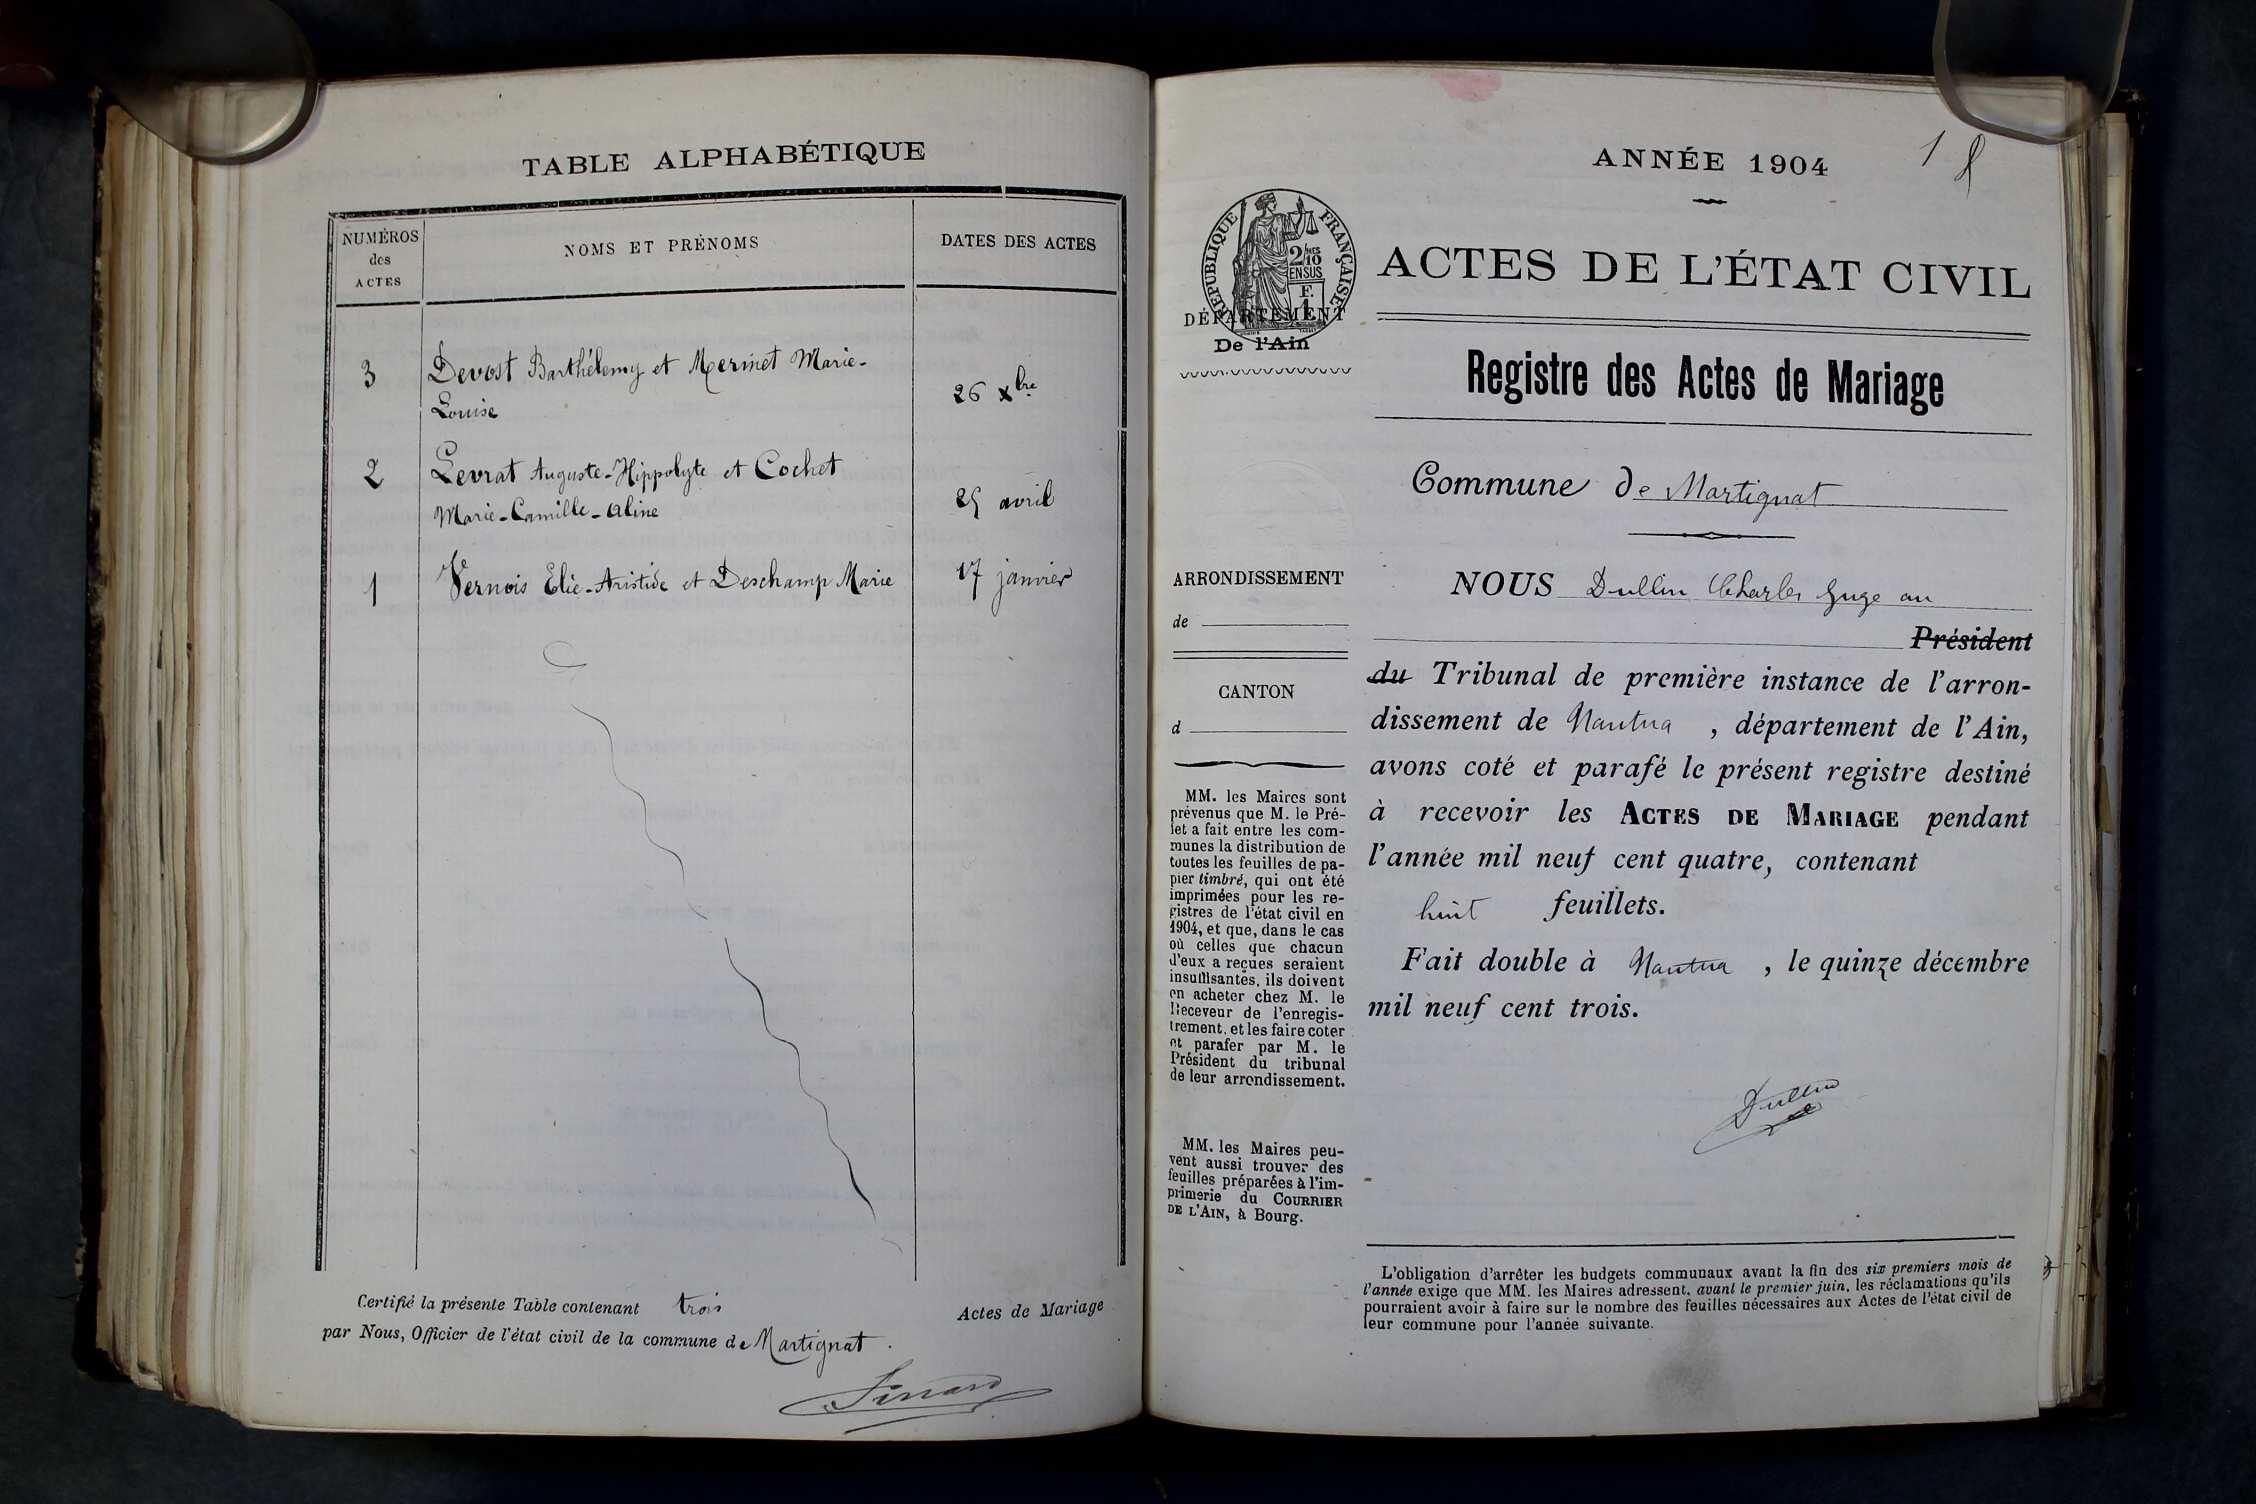 TABLE ALPHABÉTIQUE
NUMÉROS
des
ACTES
NOMS ET PRÉNOMS
DATES DES ACTES
3
Devost Barthélemy et Mermet Marie-
Louise
26 Xbre
2
Levrat Auguste-Hippolyte et Cochet
Marie-Camille-Aline
25 avril
1
Vernois Elie-Aristide et Deschamp Marie
17 janvier
Certifié la présente Table contenant trois Actes de Mariage
par Nous, Officier de l'état civil de la commune de Martignat.
ANNÉE 1904
1
RÉPUBLIQUE FRANÇAISE
2/10 MES
EN SUS
F.
1
DÉPARTEMENT
De l'Ain
ACTES DE L'ÉTAT CIVIL
Registre des Actes de Mariage
Commune de Martignat
ARRONDISSEMENT
de
CANTON
d
MM. les Maires sont
prévenus que M. le Pré-
fet a fait entre les com-
munes la distribution de
toutes les feuilles de pa-
pier timbré, qui ont été
imprimées pour les re-
gistres de l'état civil en
1904, et que, dans le cas
où celles que chacun
d'eux a reçues seraient
insuffisantes, ils doivent
en acheter chez M. le
Receveur de l'enregis-
trement, et les faire coter
et parafer par M. le
Président du tribunal
de leur arrondissement.
MM. les Maires peu-
vent aussi trouver des
feuilles préparées à l'im-
primerie du COURRIER
DE L'AIN, à Bourg.
NOUS Dullin Charles Juge au
Président
du Tribunal de première instance de l'arron-
dissement de Nantua, département de l'Ain,
avons coté et parafé le présent registre destiné
à recevoir les ACTES DE MARIAGE pendant
l'année mil neuf cent quatre, contenant
huit feuillets.
Fait double à Nantua, le quinze décembre
mil neuf cent trois.
Dullin
L'obligation d'arrêter les budgets communaux avant la fin des six premiers mois de
l'année exige que MM. les Maires adressent, avant le premier juin, les réclamations qu'ils
pourraient avoir à faire sur le nombre des feuilles nécessaires aux Actes de l'état civil de
leur commune pour l'année suivante.